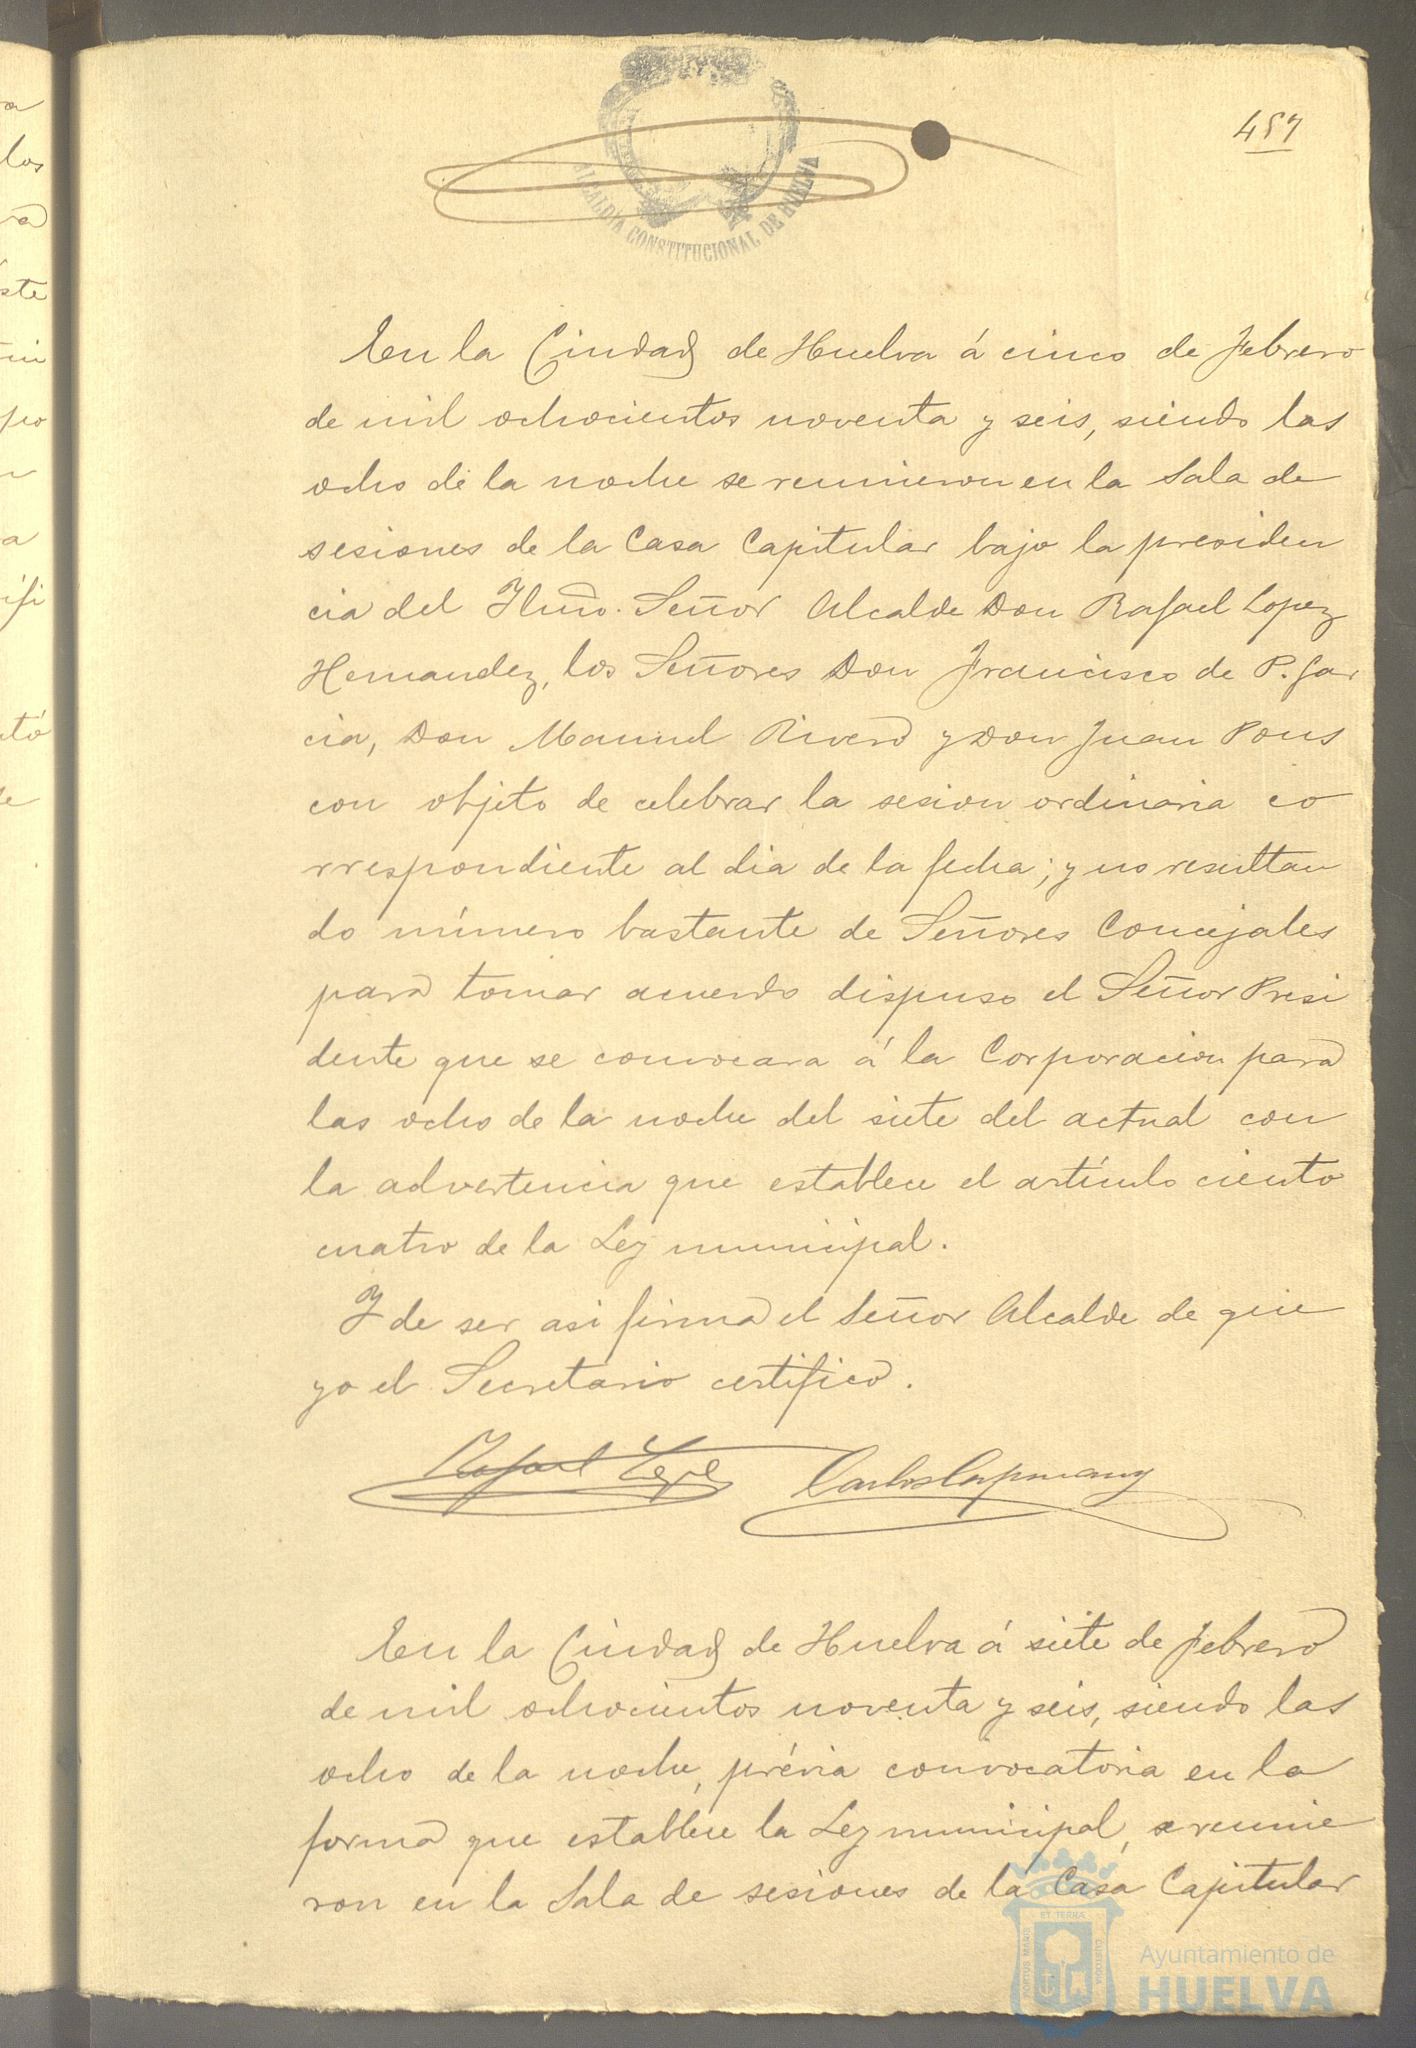 457
ALCALDÍA CONSTITUCIONAL DE HUELVA
En la Ciudad de Huelva á cinco de Febrero
de mil ochocientos noventa y seis, siendo las
ocho de la noche se reunieron en la Sala de
sesiones de la Casa Capitular bajo la presiden
cia del Ylmo. Señor Alcalde Don Rafael Lopez
Hernandez, los Señores Don Francisco de P. Gar
cia, Don Manuel Rivero y Don Juan Pons
con objeto de celebrar la sesion ordinaria co
rrespondiente al dia de la fecha; y no resultan
do número bastante de Señores Concejales
para tomar acuerdo dispuso el Señor Presi
dente que se convocara á la Corporacion para
las ocho de la noche del siete del actual con
la advertencia que establece el artículo ciento
cuatro de la Ley municipal.
Y de ser asi firma el Señor Alcalde de que
yo el Secretario certifico.
Rafael Lopez Carlos Capmany
En la Ciudad de Huelva á siete de Febrero
de mil ochocientos noventa y seis, siendo las
ocho de la noche, prévia convocatoria en la
forma que establece la Ley municipal, se reunie
ron en la Sala de sesiones de la Casa Capitular
PORTUS MARIS ET TERRAE CUSTODIA
Ayuntamiento de
HUELVA